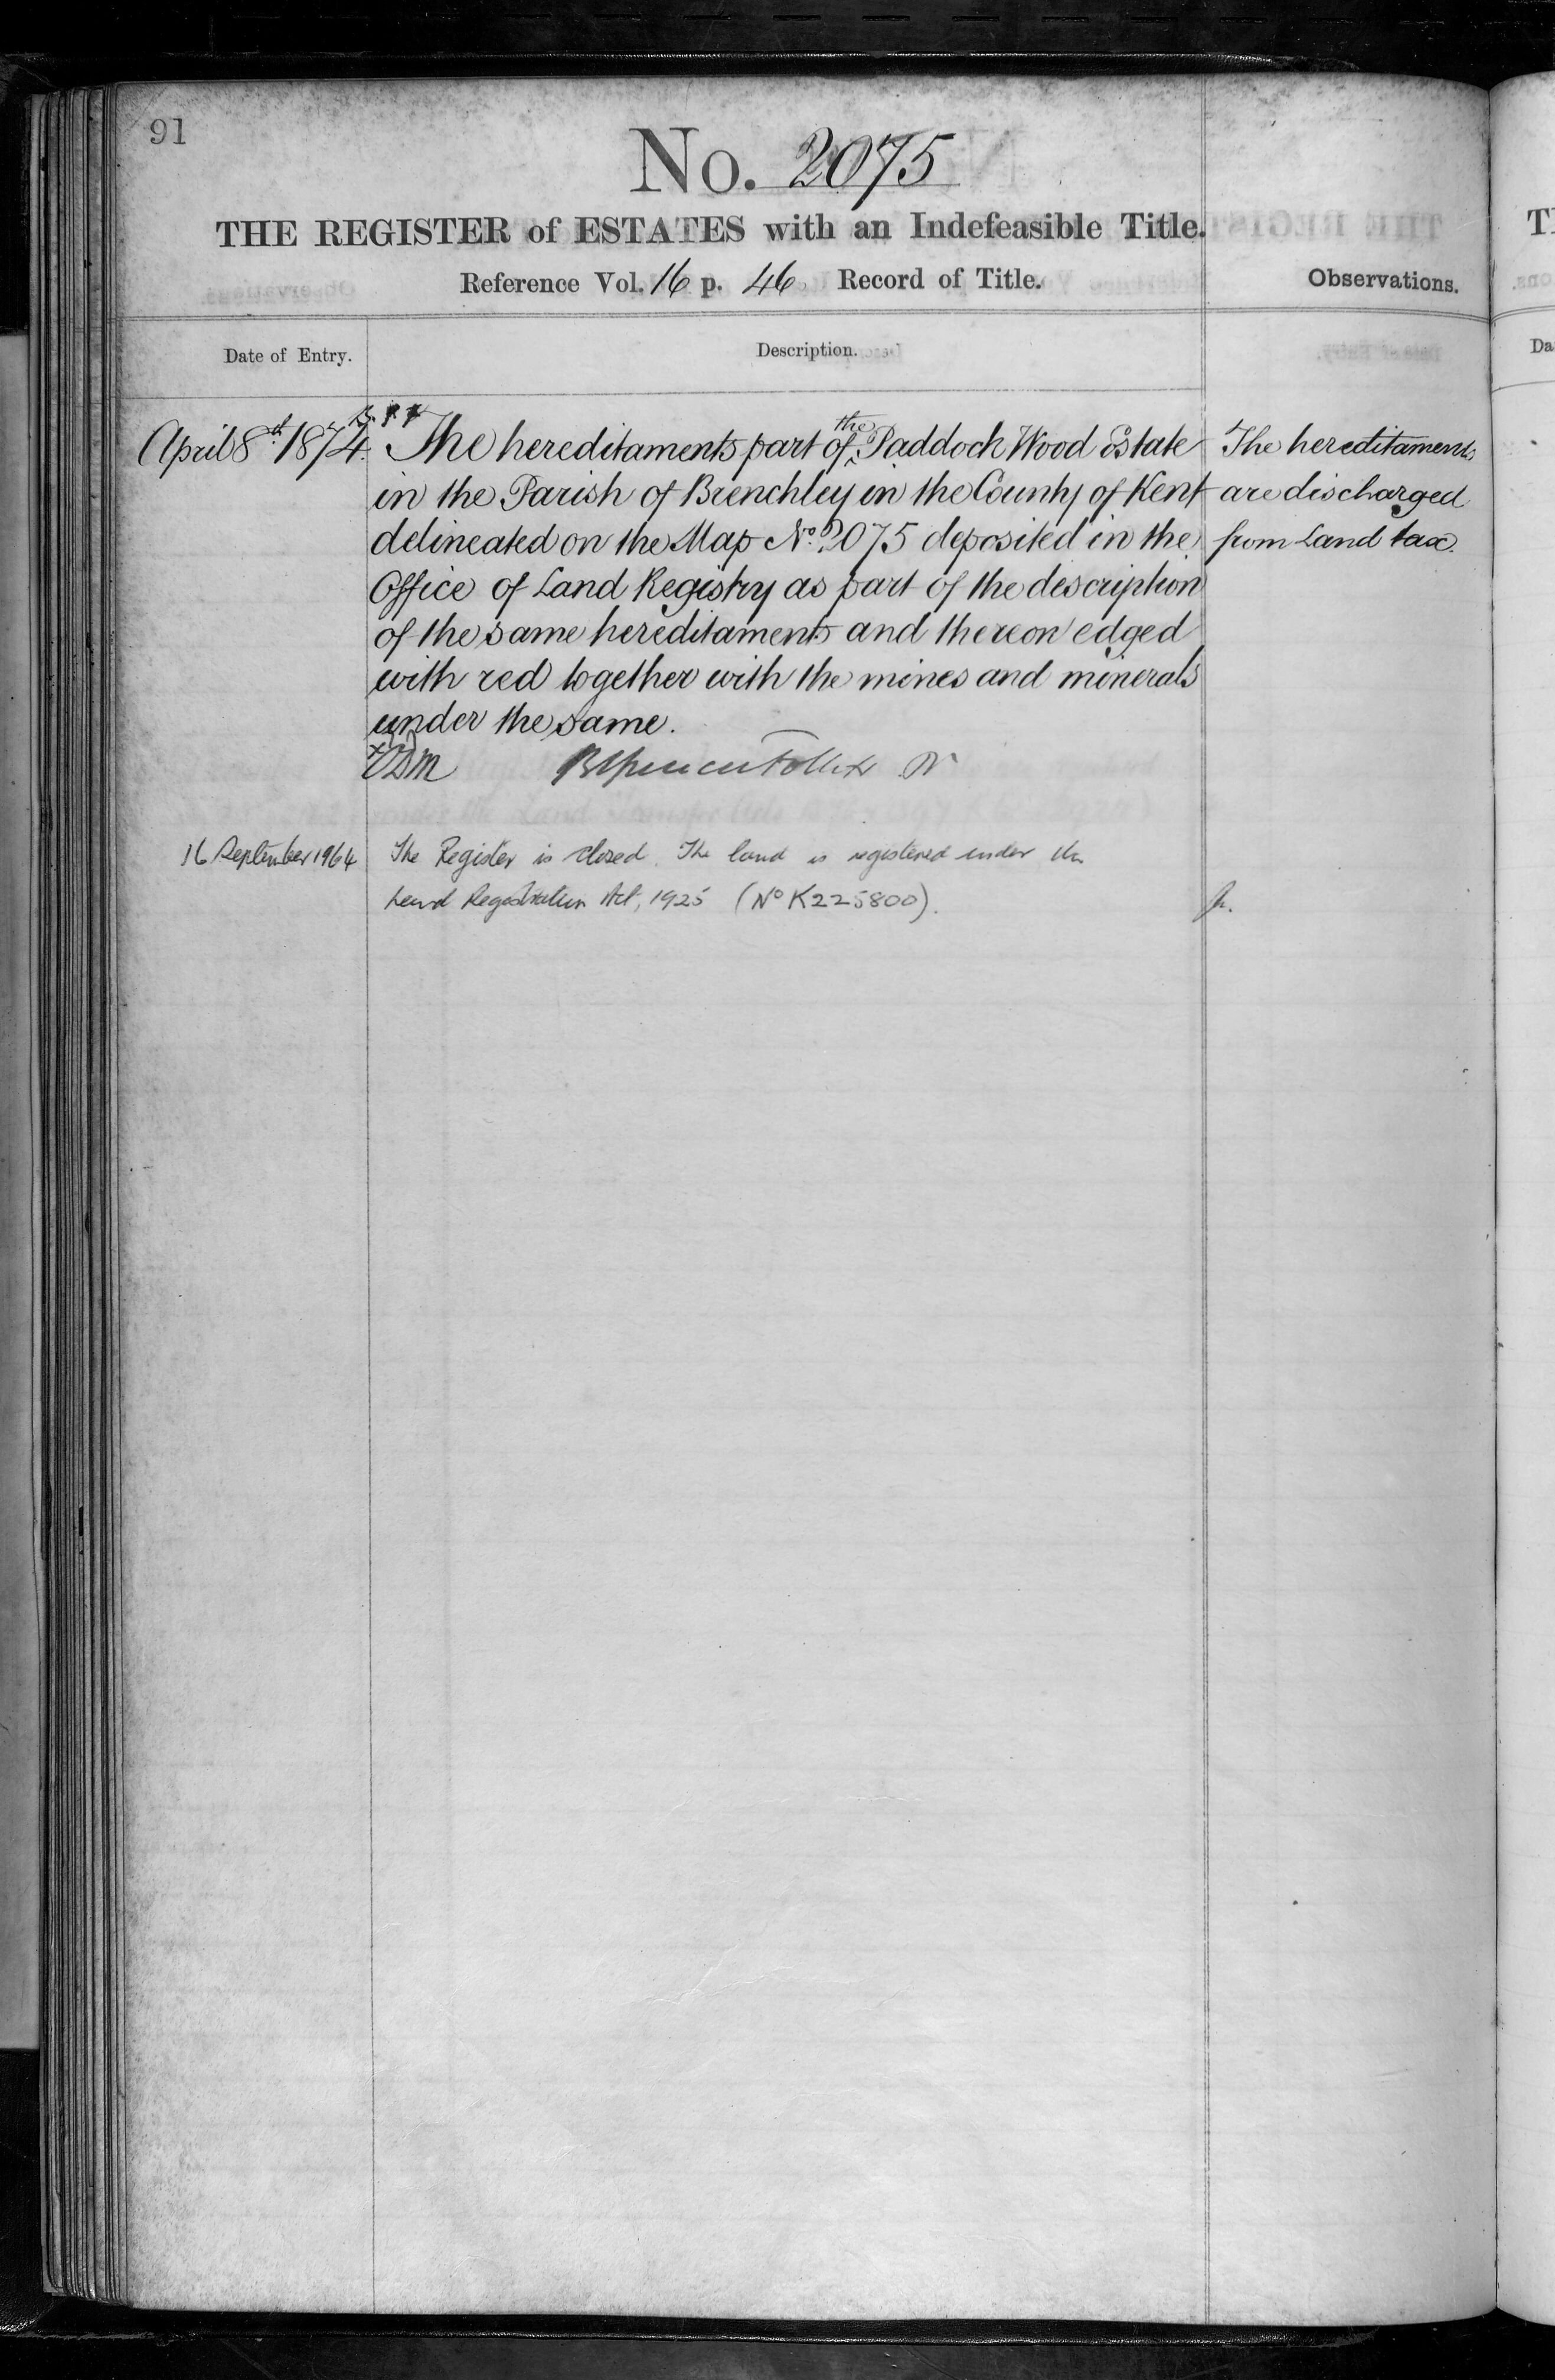 91
No. 2075
THE REGISTER of ESTATES with an Indefeasible Title.
Reference Vol. 16 p. 46 Record of Title.
Observations.
Date of Entry.
Description.
April 8th 1874. The hereditaments part of the Paddock Wood Estate
in the Parish of Brenchley in the County of Kent
delineated on the Map No. 2075 deposited in the
Office of Land Registry as part of the description
of the same hereditaments and thereon edged
with red together with the mines and minerals
under the same.
The hereditaments
are discharged
from Land tax.
16 September 1964 The Register is closed. The land is registered under the
Land Registration Act, 1925 (No K225800).